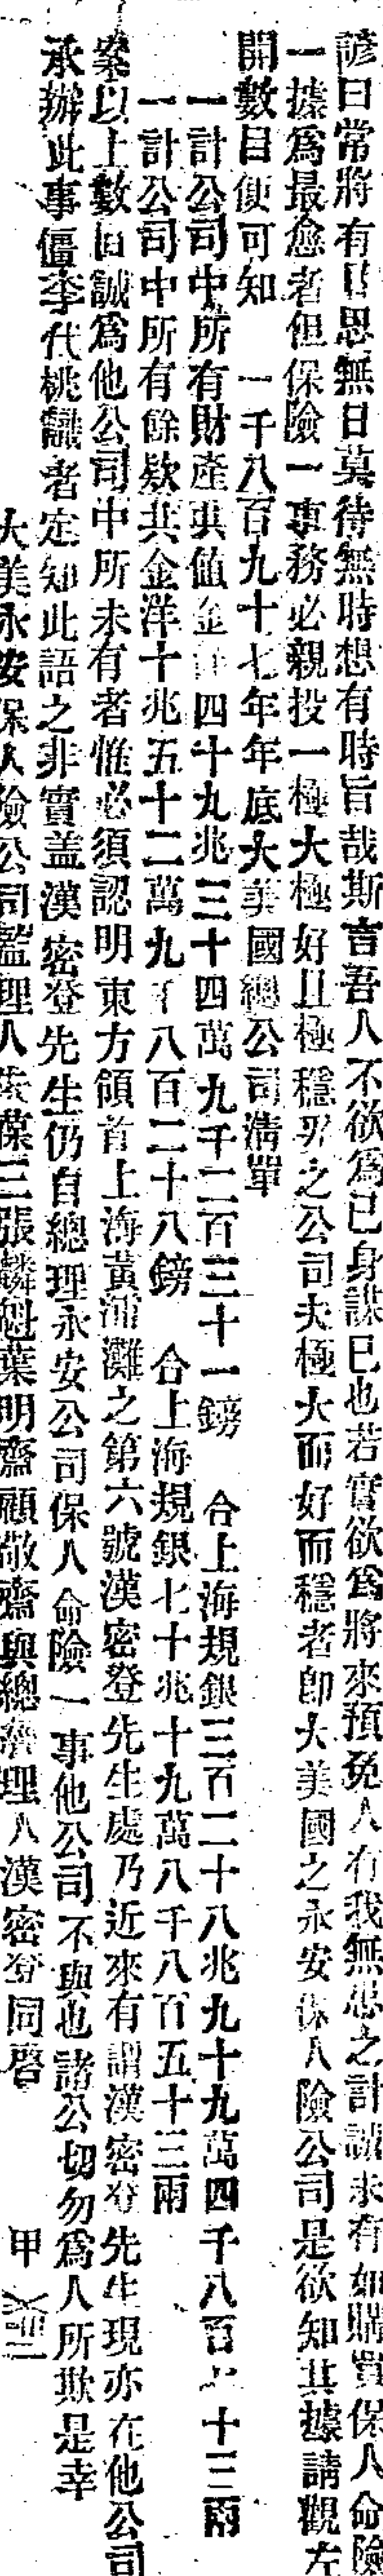 諺曰常將有日思無日莫待無時想有時旨哉斯言吾人不欲爲已身謀巳也若實欲爲將來預免人有我無悲之計誠未有如購買保人命險
一據爲最愈者但保險一事務必親投一極大極好且極穩妥之公司夫極大而好而穩者即大美國之永安保人險公司是欲知其據請觀左
開數目便可知　一千八百九十七年年底大美國總公司淸單
一計公司中所有財產共値金洋四十九兆三十四萬九千二百三十一鎊　合上海規銀三百二十八兆九十九萬四千八百十三兩
一計公司中所有餘欵共金洋十兆五十二萬九千八百二十八鎊　合上海規銀七十兆十九萬八千八百五十三兩
案以上數目誠爲他公司中所未有者惟必須認明東方領首上海黃浦灘之第六號漢密登先生處乃近來有謂漢密登先生現亦在他公司
承辦此事僵李代桃識者定知此語之非實盖漢密登先生仍自總理永安公司保人命險一事他公司不與也諸公切勿爲人所欺是幸
大美永安保人險公司監理人葆三張麟魁葉明齋顧敬齋與總管理人漢密登同啓　甲